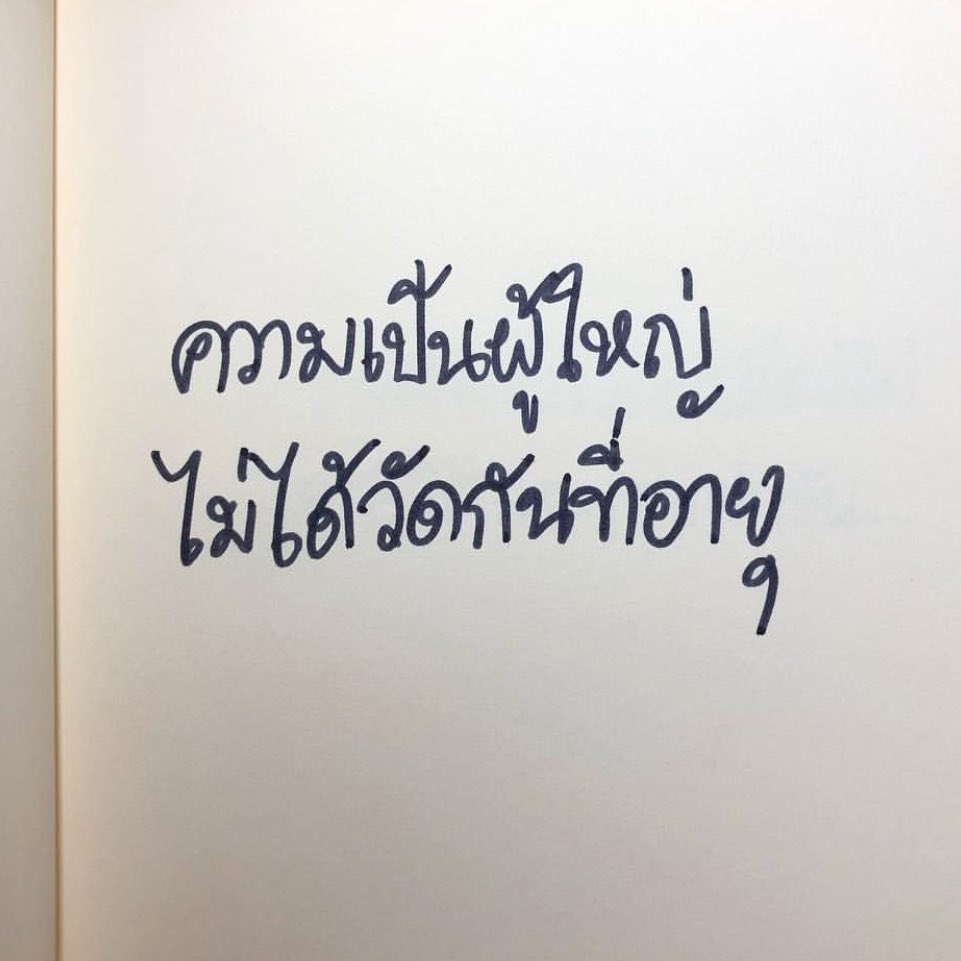 ความเป็นผู้ใหญ่
ไม่ได้วัดกันที่อายุ